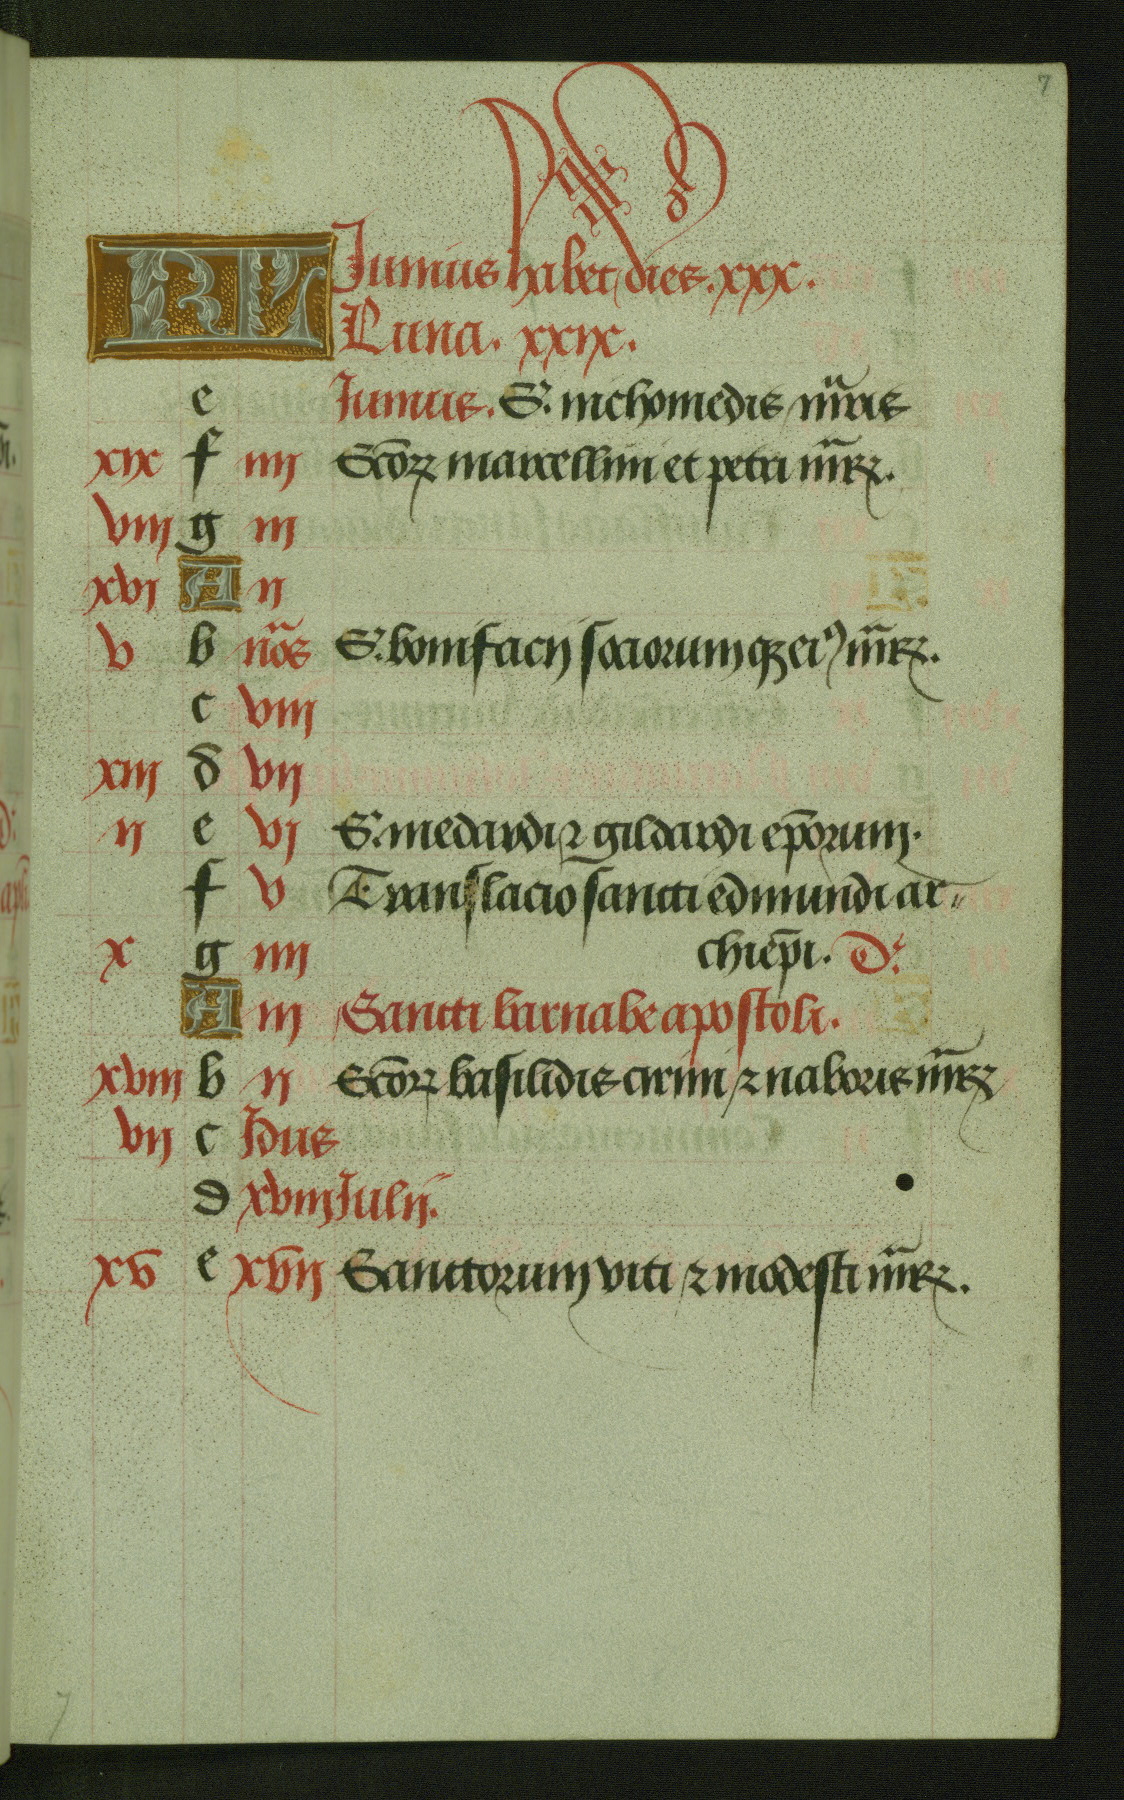 7
KL Junius habet dies. xxx.
Luna. xxix.
e Junius. S. nichomedis mr̃is
xix f iiij Scõꝝ marcellini et petri mr̃ꝝ.
viij g iij
xvj A ij
v b nõs S. bonifacij sociorumqꝫ eiꝰ mr̃ꝝ.
c viij
xiij d vij
ij e vj S. medardi ⁊ gildardi ep̃orum.
f v Translacio sancti edmundi ar⸗
x g iiij chiep̃i. D:
A iij Sancti barnabe apostoli.
xviij b ij Scõꝝ basilidis cirini ⁊ naboris mr̃ꝝ
vij c Idus
d xviij Julij.
xv e xvij Sanctorum viti ⁊ modesti mr̃ꝝ.
7